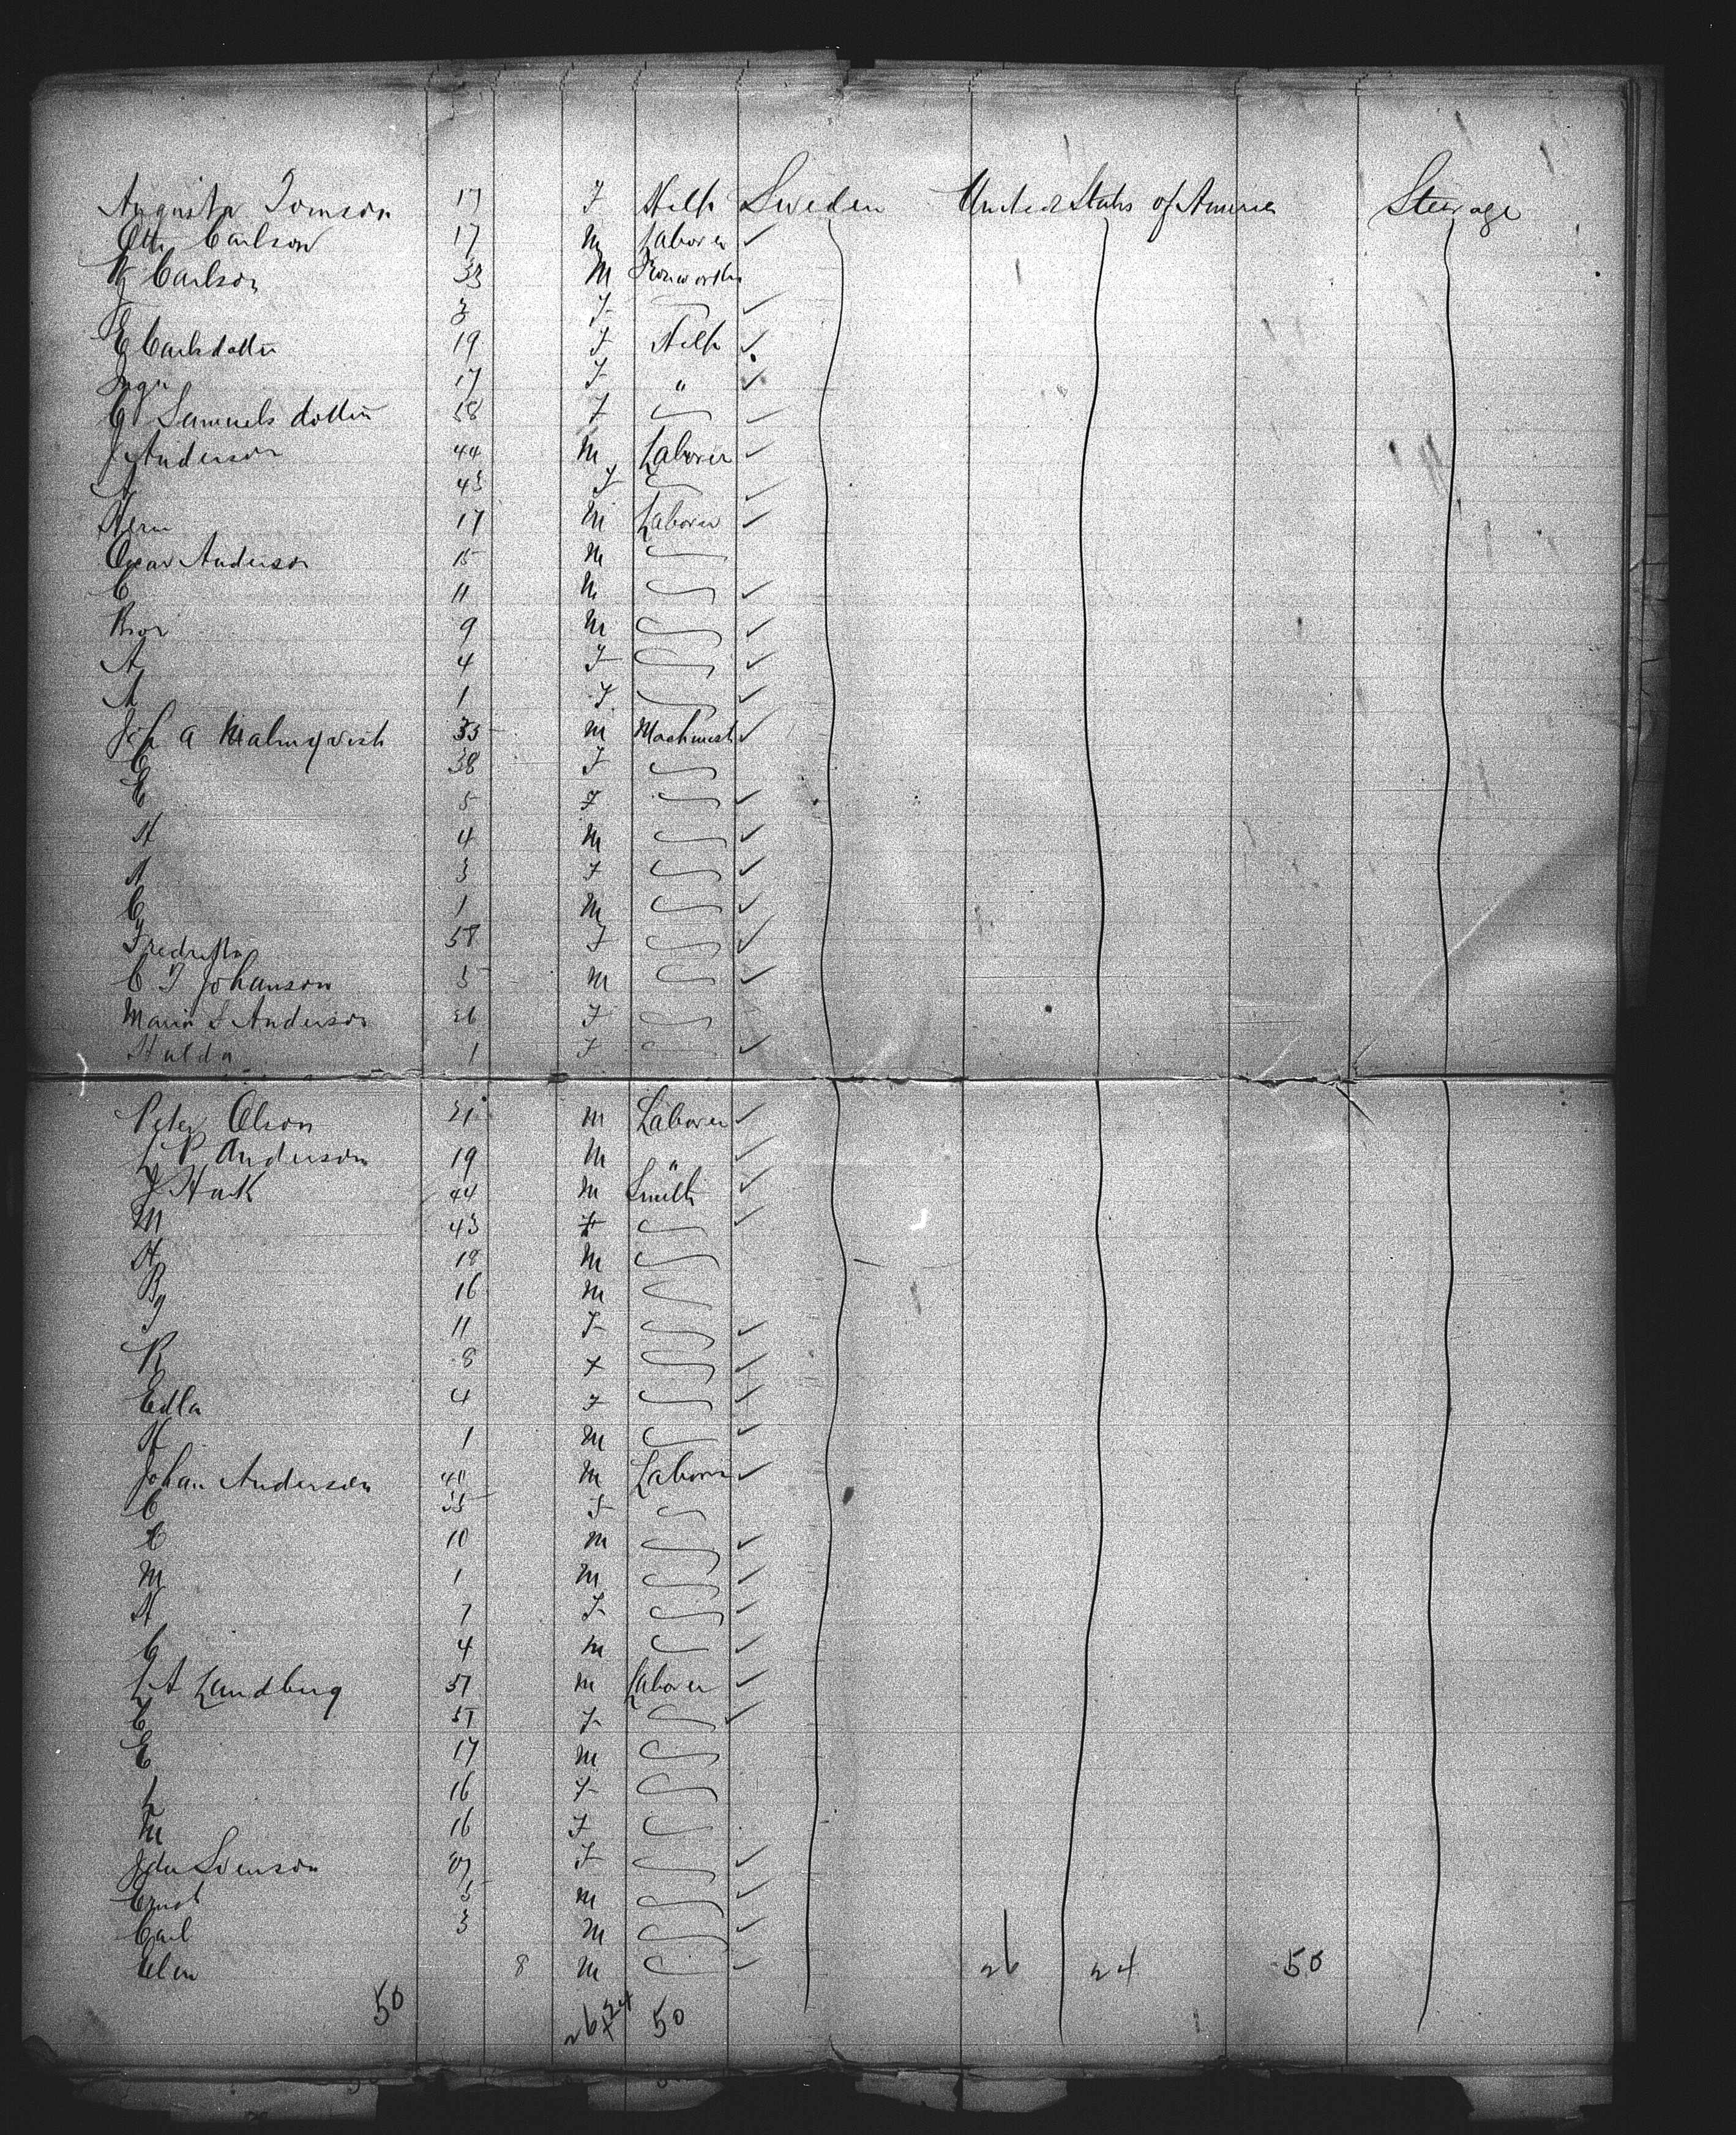 Augusta Jomson 17 F Help Sweden United States of America Steerage
Otto Carlson 17 M Laborer ✓
Carlson 33 M Ironworker
3 F ✓
E Carlsdotter 19 F Help ✓
Inga 17 F " ✓
C Samuelsdotter 58 F ✓
J Anderson 44 M Laborer ✓
A 43 F ✓
Herm 17 M Laborer ✓
Oscar Anderson 15 M
C 11 M ✓
Bror 9 M ✓
A 4 F ✓
A 1 F ✓
Joh A Malmqvist 35 M Machinist ✓
C 38 F
E 5 F ✓
H 4 M ✓
A 3 F ✓
G 1 M ✓
Fredrika 58 F ✓
C J Johanson 5 M ✓
Maria S Anderson 26 F
Hulda 1 F ✓
Peter Olson 21 M Laborer ✓
L P Anderson 19 M " ✓
J Hak 44 M Smith ✓
M 43 F ✓
H 18 M
B 16 M
11 F ✓
R 8 F ✓
Edla 4 F ✓
H 1 M ✓
Johan Anderson 40 M Laborer ✓
C 35 F
E 10 M ✓
M 1 M ✓
H 7 F ✓
G 4 M ✓
L A Landberg 51 M Laborer ✓
C 51 F ✓
E 17 M
L 16 F
M 16 F
Ida Svenson 27 F ✓
Ernst 5 M ✓
Carl 3 M ✓
Elin 8 M ✓ 26 24 50
50 26 + 24 50